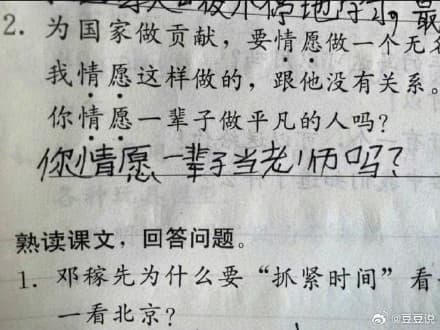 2. 为国家做贡献，要情愿做一个无名
我情愿这样做的，跟他没有关系。
你情愿一辈子做平凡的人吗？
你情愿一辈子当老师吗？
熟读课文，回答问题。
1. 邓稼先为什么要“抓紧时间”看
一看北京？
@豆豆说